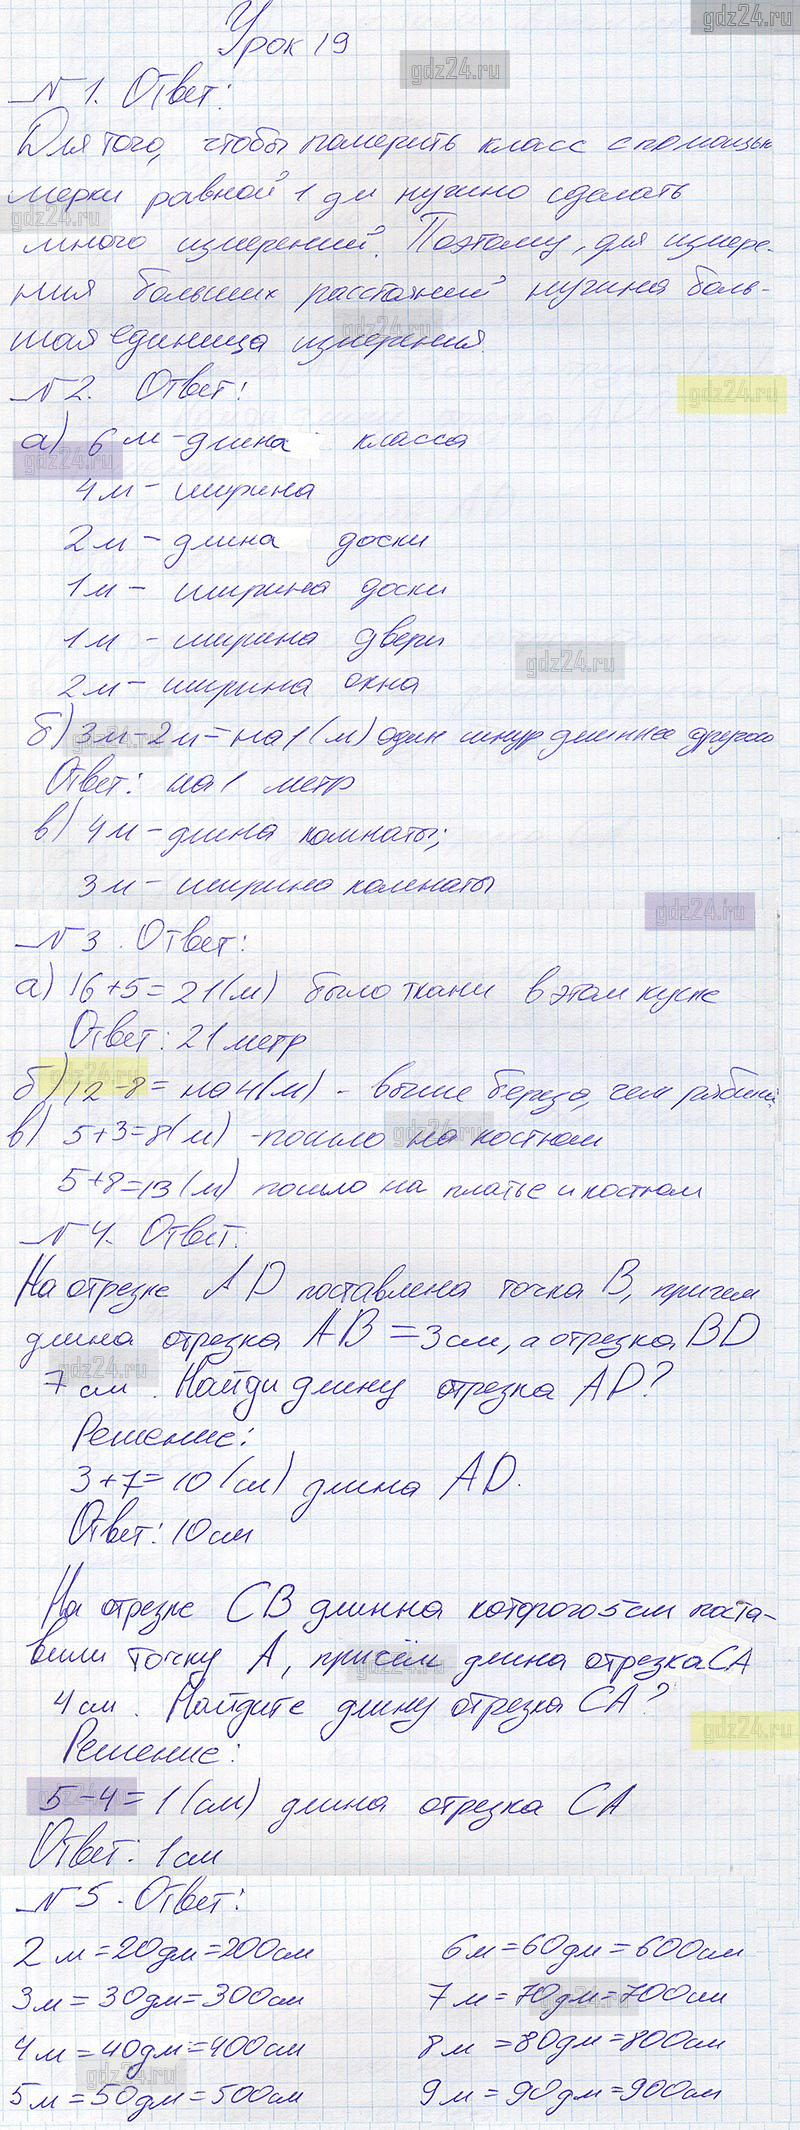 gdz24.ru
Урок 19
gdz24.ru
№ 1. Ответ:
Для того, чтобы померить класс с помощью
мерки равной 1 дм нужно сделать
gdz24.ru
много измерений. Поэтому, для измере-
ния больших расстояний нужна боль-
gdz24.ru
шая единица измерения.
№ 2. Ответ:
gdz24.ru
а) 6 м - длина класса
gdz24.ru
4 м - ширина
2 м - длина доски
1 м - ширина доски
1 м - ширина двери
gdz24.ru
2 м - ширина окна
б) 3м - 2м = на 1 (м) один шнур длиннее другого
gdz24.ru
Ответ: на 1 метр
в) 4м - длина комнаты;
3м - ширина комнаты
gdz24.ru
№ 3. Ответ:
а) 16 + 5 = 21 (м) было ткани в этом куске
Ответ: 21 метр
gdz24.ru
б) 12 - 8 = на 4 (м) - выше береза, чем рябина
в) 5 + 3 = 8 (м) - пошло на костюм
gdz24.ru
5 + 8 = 13 (м) пошло на платье и костюм
№ 4. Ответ:
На отрезке AD поставлена точка B, причем
длина отрезка AB = 3 см, а отрезка BD
gdz24.ru
7 см. Найди длину отрезка AD?
Решение:
3 + 7 = 10 (см) длина AD.
Ответ: 10 см
На отрезке CB длинна которого 5 см поста-
вили точку A, причём длина отрезка CA
gdz24.ru
4 см. Найдите длину отрезка CA?
gdz24.ru
Решение:
5 - 4 = 1 (см) длина отрезка CA
gdz24.ru
Ответ: 1 см
№ 5. Ответ:
2 м = 20 дм = 200 см 6 м = 60 дм = 600 см
3 м = 30 дм = 300 см 7 м = 70 дм = 700 см
gdz24.ru
4 м = 40 дм = 400 см 8 м = 80 дм = 800 см
gdz24.ru
5 м = 50 дм = 500 см 9 м = 90 дм = 900 см